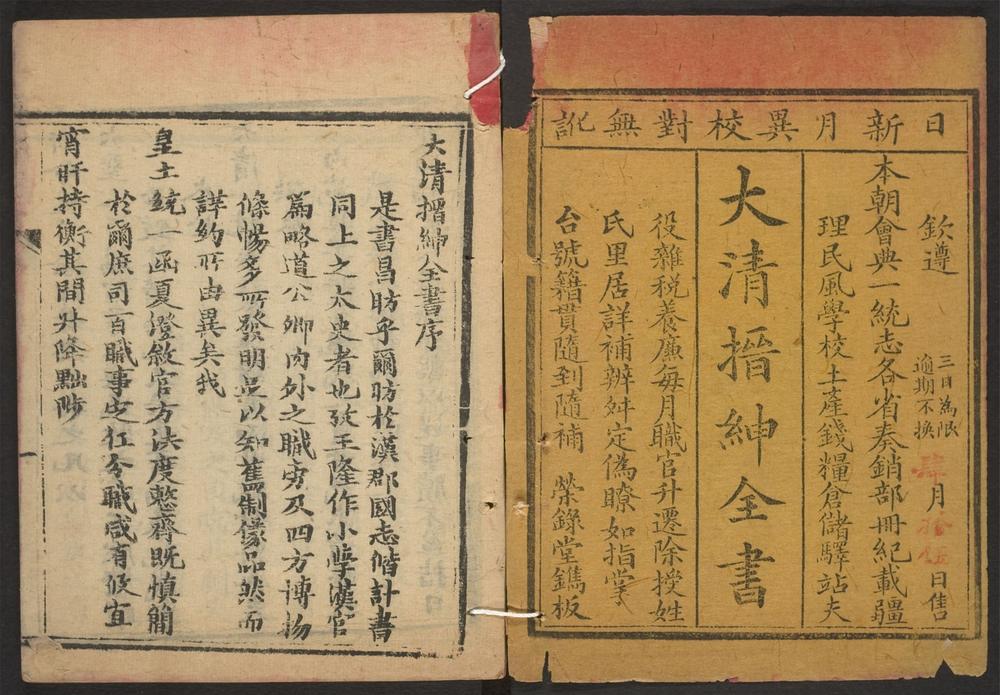 日新月異校對無訛
欽遵
三日為限
逾期不換
肆月拾伍日售
本朝會典一統志各省奏銷部冊紀載疆
理民風學校土產錢糧倉儲驛站夫
大清搢紳全書
役雜稅養廉每月職官升遷除授姓
氏里居詳補辨舛定偽瞭如指掌
台號籍貫隨到隨補 榮錄堂鐫板
大清搢紳全書序
是書昌昉乎爾昉於漢郡國志偕計書
同上之太史者也攷王隆作小學漢官
篇略道公卿內外之職旁及四方博物
條暢多所發明足以知舊制儀品然而
詳約所由異矣我
皇上統一函夏澄敘官方法度整齊既慎簡
於爾庶司百職事定仕令職咸有攸宜
宵旰持衡其間升降黜陟